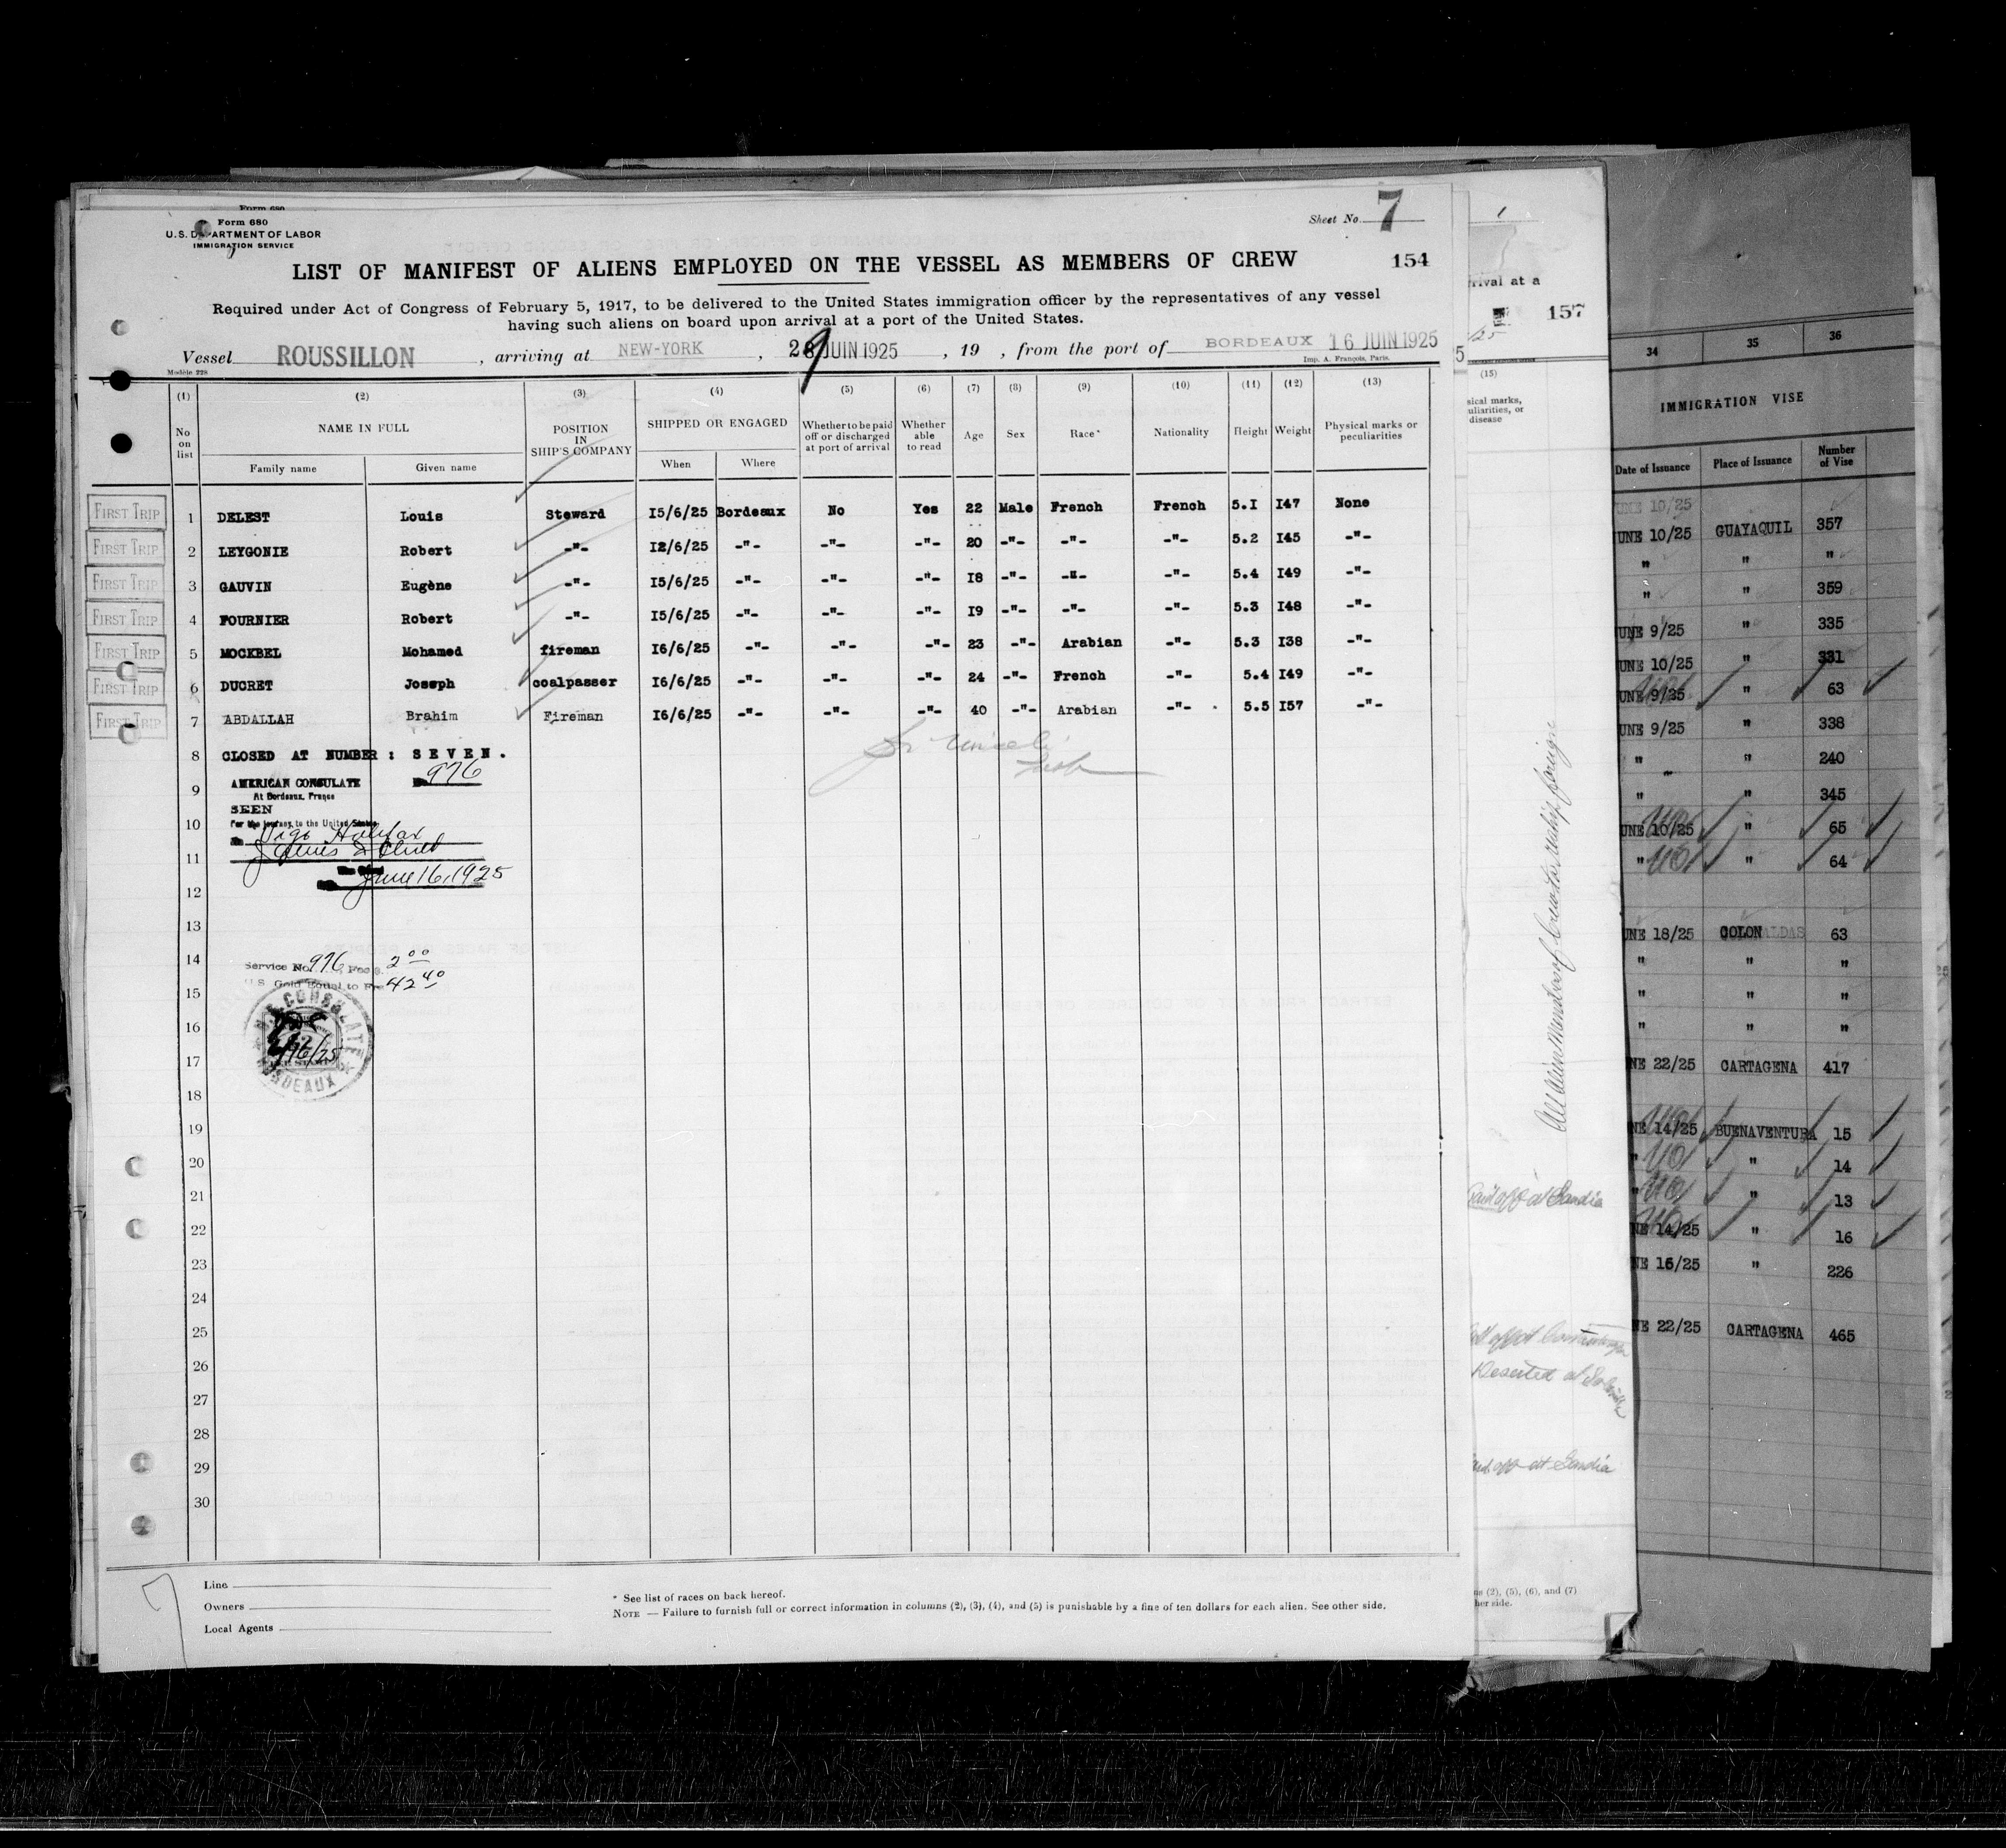 Form 680
Form 680
U.S. DEPARTMENT OF LABOR
IMMIGRATION SERVICE
Sheet No. 7
LIST OF MANIFEST OF ALIENS EMPLOYED ON THE VESSEL AS MEMBERS OF CREW
154
Required under Act of Congress of February 5, 1917, to be delivered to the United States immigration officer by the representatives of any vessel
having such aliens on board upon arrival at a port of the United States.
Vessel ROUSSILLON , arriving at NEW-YORK , 28 JUIN 1925 , 19 , from the port of BORDEAUX 16 JUIN 1925
Modèle 228
Imp. A. François, Paris.
(1) (2) (3) (4) (5) (6) (7) (8) (9) (10) (11) (12) (13)
No on list NAME IN FULL POSITION IN SHIP'S COMPANY SHIPPED OR ENGAGED Whether to be paid off or discharged at port of arrival Whether able to read Age Sex Race* Nationality Height Weight Physical marks or peculiarities
Family name Given name When Where
FIRST TRIP 1 DELEST Louis Steward I5/6/25 Bordeaux No Yes 22 Male French French 5.I I47 None
FIRST TRIP 2 LEYGONIE Robert -"- I2/6/25 -"- -"- -"- 20 -"- -"- -"- 5.2 I45 -"-
FIRST TRIP 3 GAUVIN Eugène -"- I5/6/25 -"- -"- -"- I8 -"- -"- -"- 5.4 I49 -"-
FIRST TRIP 4 FOURNIER Robert -"- I5/6/25 -"- -"- -"- I9 -"- -"- -"- 5.3 I48 -"-
FIRST TRIP 5 MOCKBEL Mohamed fireman I6/6/25 -"- -"- -"- 23 -"- Arabian -"- 5.3 I38 -"-
FIRST TRIP 6 DUCRET Joseph coalpasser I6/6/25 -"- -"- -"- 24 -"- French -"- 5.4 I49 -"-
FIRST TRIP 7 ABDALLAH Brahim Fireman I6/6/25 -"- -"- -"- 40 -"- Arabian -"- 5.5 I57 -"-
8 CLOSED AT NUMBER : S E V E N .
976
9 AMERICAN CONSULATE
At Bordeaux, France
SEEN
10 For the journey to the United States
Vigo Halifax
11
June 16, 1925
12
13
14 Service No. 976, Fee $. 2 00
15 U.S. Gold Equal to Frs 42 40
CONSULATE
16
17
BORDEAUX
18
19
20
21
22
23
24
25
26
27
28
29
30
Line
Owners
Local Agents
* See list of races on back hereof.
NOTE — Failure to furnish full or correct information in columns (2), (3), (4), and (5) is punishable by a fine of ten dollars for each alien. See other side.
1
rrival at a
157
(15)
sical marks,
uliarities, or
disease
Paid off at Gandia
Deserted at
off at Gandia
ns (2), (5), (6), and (7)
her side.
34 35 36
IMMIGRATION VISE
Date of Issuance Place of Issuance Number of Vise
UNE 10/25
UNE 10/25 GUAYAQUIL 357
" " "
" " 359
UNE 9/25 " 335
UNE 10/25 " 331
UNE 9/25 " 63
UNE 9/25 " 338
" " 240
" " 345
UNE 10/25 " 65
" " 64
UNE 18/25 COLON 63
" " "
" " "
" " "
NE 22/25 CARTAGENA 417
NE 14/25 BUENAVENTURA 15
" " 14
" " 13
NE 14/25 " 16
NE 16/25 " 226
NE 22/25 CARTAGENA 465